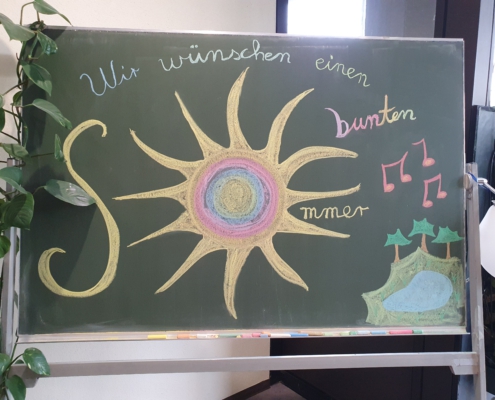 Wir wünschen einen
bunten
S mmer